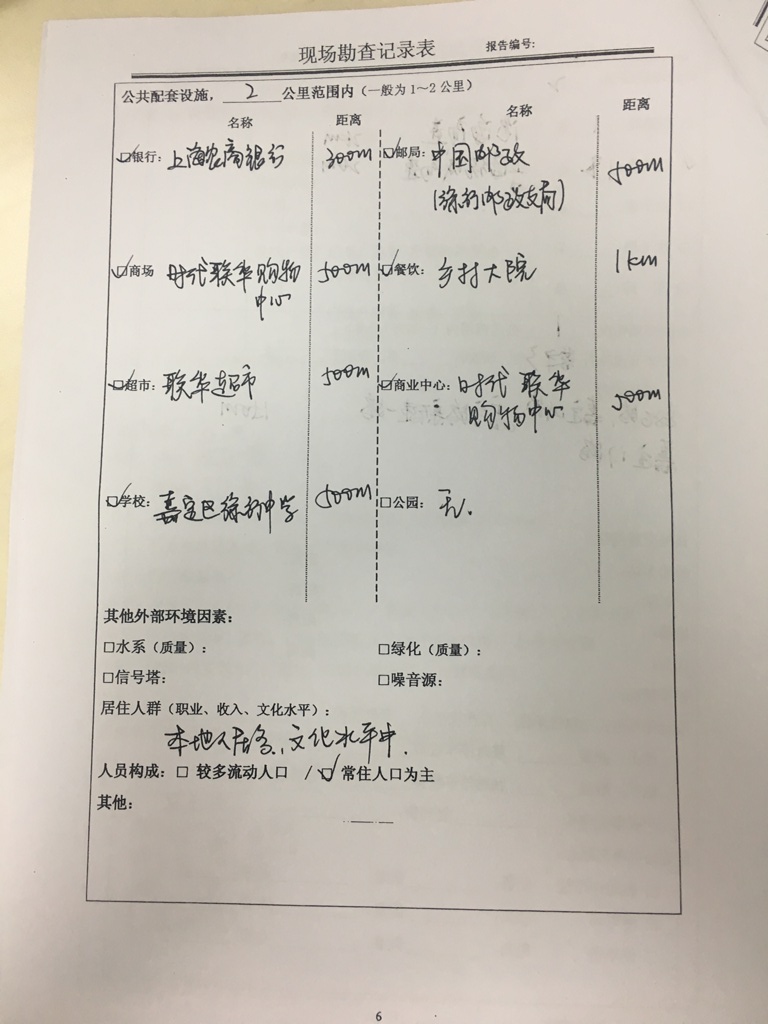 现场勘查记录表 报告编号:
公共配套设施，2公里范围内（一般为1～2公里）
名称 距离 名称 距离
☑银行：上海农商银行 300m ☑邮局：中国邮政 500m
（徐行邮政支局）
☑商场 时代联华购物 500m ☑餐饮：乡村大院 1km
中心
☑超市：联华超市 500m ☑商业中心：时代联华 500m
购物中心
☑学校：嘉定区徐行中学 500m □公园：无.
其他外部环境因素：
□水系（质量）： □绿化（质量）：
□信号塔： □噪音源：
居住人群（职业、收入、文化水平）：
本地人居多，文化水平中.
人员构成：□ 较多流动人口 /☑ 常住人口为主
其他：
6